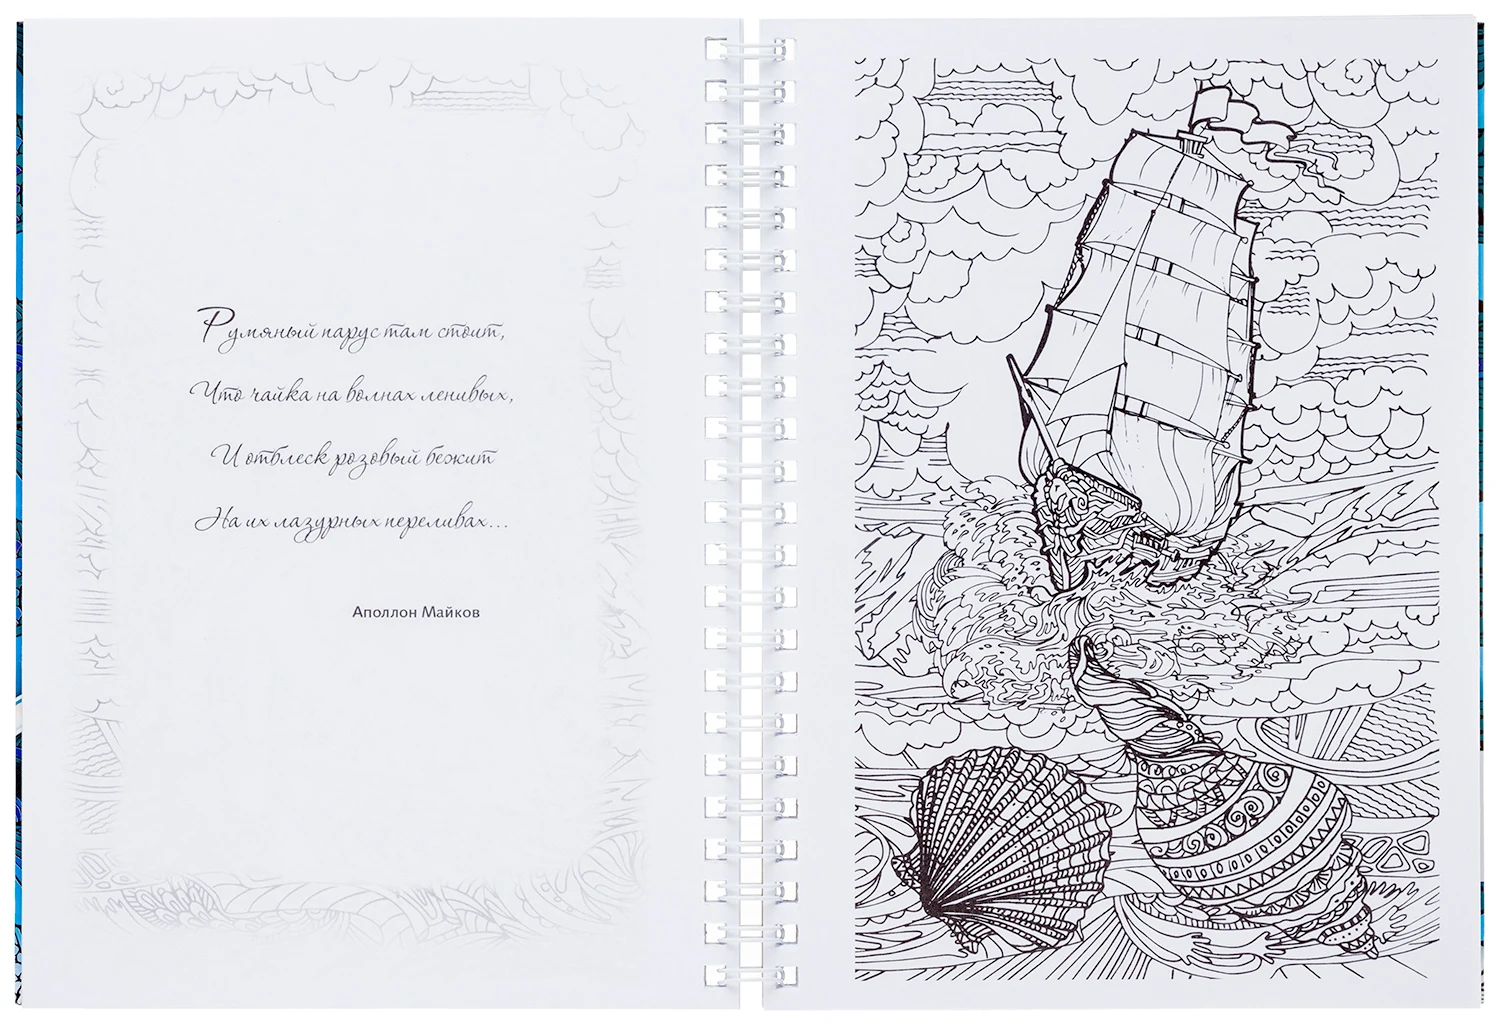 Румяный парус там стоит,
Что чайка на волнах ленивых,
И отблеск розовый бежит
На их лазурных переливах...
Аполлон Майков